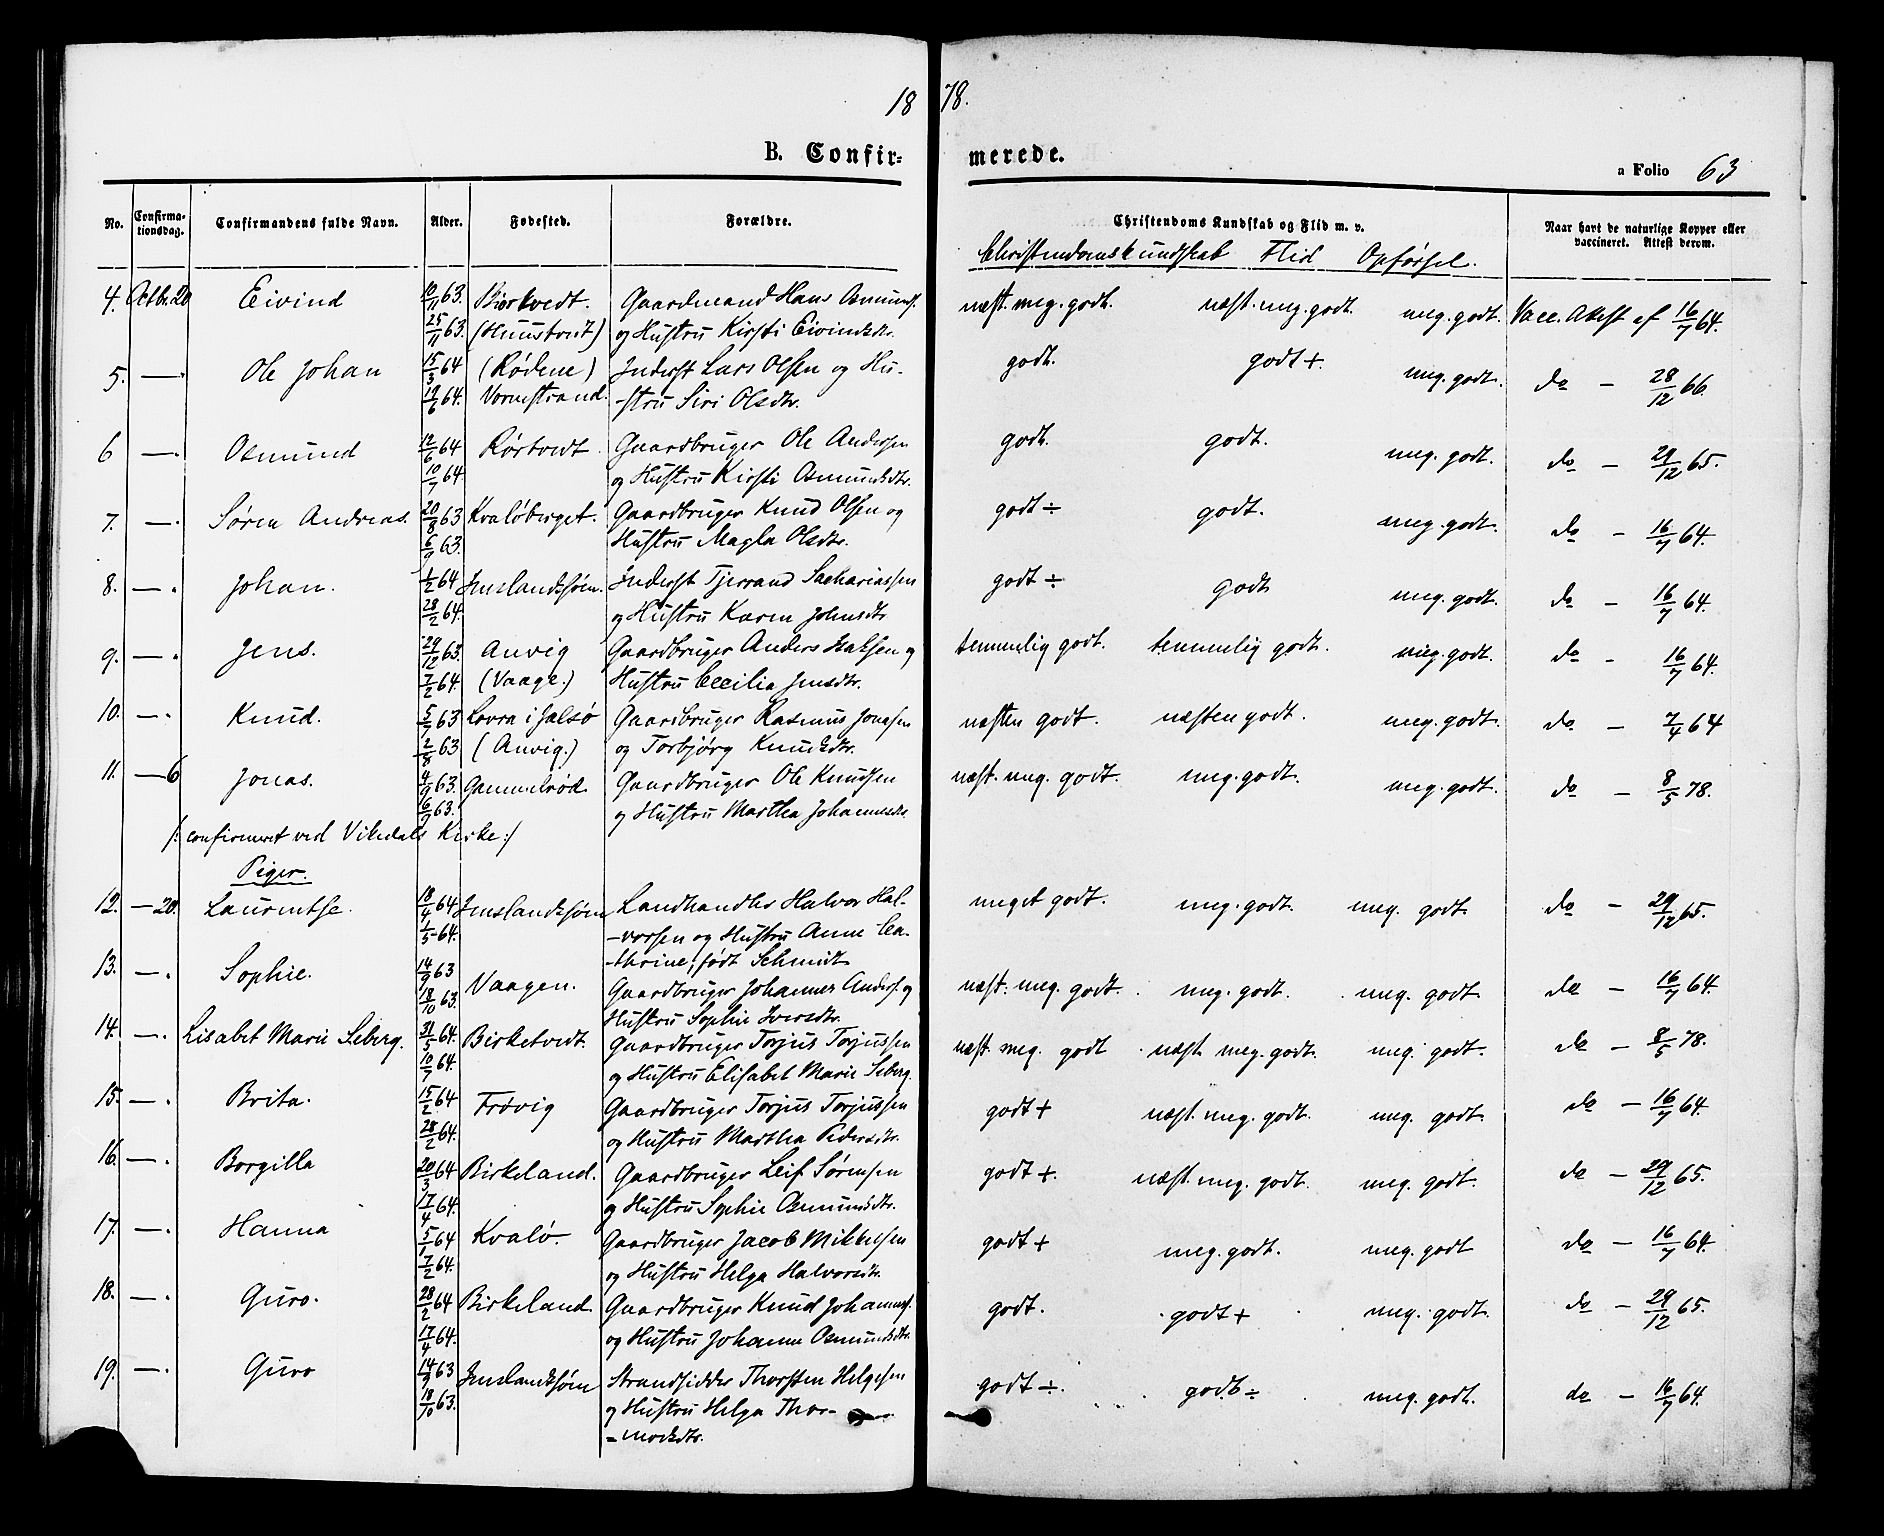 18 78.
B. Confir- merede.
a Folio 63
No. Confirma-tionsdag. Confirmandens fulde Navn. Alder. Fødested. Forældre. Christendoms Kundskab og Flid m. v. Naar havt de naturlige Kopper eller vaccineret. Attest derom.
Christendomskundskab Flid Opførsel.
4. Octbr. 20 Eivind 10/11 63. Birkvedt. Gaardmand Hans Osmunds. næst. meg. godt. næst. meg. godt. meg. godt. Vacc. Attest af 16/7 64.
25/11 63. (Huustvedt) og Hustru Kirsti Eivindsdtr.
5. — Ole Johan 15/3 64 (Rødene) Inderst Lars Olsen og Hu- godt. godt +. meg. godt. do — 28/12 66.
19/6 64. Vormstrand. -stru Siri Olsdtr.
6 — Osmund 12/6 64 Rørtvedt. Gaardbruger Ole Andersen godt. godt. meg. godt. do — 29/12 65.
10/7 64. og Hustru Kirsti Osmundsdtr.
7. — Søren Andreas. 20/8 63 Kvaløberget. Gaardbruger Knud Olsen og godt ÷ godt. meg. godt. do — 16/7 64.
6/9 63. Hustru Magla Olsdtr.
8. — Johan. 1/2 64 Imslandsjøen. Inderst Tjerrand Sachariassen godt ÷ godt meg. godt. do — 16/7 64.
28/2 64. og Hustru Karen Johnsdtr
9. — Jens. 29/12 63. Anvig Gaardbruger Anders Isaksen og temmelig godt. temmelig godt. meg. godt. do — 16/7 64.
7/2 64. (Vaage.) Hustru Cecilia Jensdtr.
10. — Knud. 5/7 63 Lovra i Jalsø Gaardbruger Rasmus Jonasen næsten godt. næsten godt. meg. godt. do — 7/4 64
2/8 63 (Anvig.) og Torbjørg Knudsdtr.
11. — 6 Jonas. 4/9 63. Gammelrød Gaardbruger Ole Knudsen næst. meg. godt. meg. godt. meg. godt. do — 8/5 78.
6/9 63. og Hustru Martha Johannesdtr.
/: confirmeret ved Vikedals Kirke :/
Piger.
12. — 20. Laurentse. 18/4 64 Imslandsjøen Landhandler Halvor Hal- meget godt. meg. godt. meg. godt. do — 29/12 65.
1/5 64. -vorsen og Hustru Anne Ca-
-thrine, født Schmidt
13. — Sophie. 14/9 63 Vaagen. Gaardbruger Johannes Anders. og næst. meg. godt. meg. godt. meg. godt. do — 16/7 64.
18/10 63. Hustru Sophie Iversdtr.
14. — Lisabet Marie Seberg. 31/5 64. Birketvedt. Gaardbruger Torjus Torjussen næst. meg. godt næst. meg. godt. meg. godt. do — 8/5 78.
10/7 64. og Hustru Elisabet Marie Seberg.
15. — Brita. 15/2 64 Frøvig Gaardbruger Torjus Torjussen godt + næst. meg. godt. meg. godt. do — 16/7 64.
28/2 64. og Hustru Martha Pedersdtr.
16. — Borgilla 20/3 64 Birkeland. Gaardbruger Leif Sørensen godt +. næst. meg. godt. meg. godt. do — 29/12 65.
17/4 64. og Hustru Sophie Osmundsdtr.
17. — Hanna 5/1 64 Kvalø. Gaardbruger Jacob Mikkelsen godt + meg. godt. meg. godt do — 16/7 64.
7/2 64. og Hustru Helga Halvorsdtr.
18. — Guro. 28/2 64 Birkeland. Gaardbruger Knud Johanness. godt. godt + meg. godt. do — 29/12 65.
17/4 64. og Hustru Johanne Osmundsdtr.
19. — Guro 14/9 63 Imslandsjøen Strandsidder Thorsten Helgesen godt ÷. godt ÷ meg. godt. do — 16/7 64.
18/10 63. og Hustru Helga Thor-
-modsdtr.